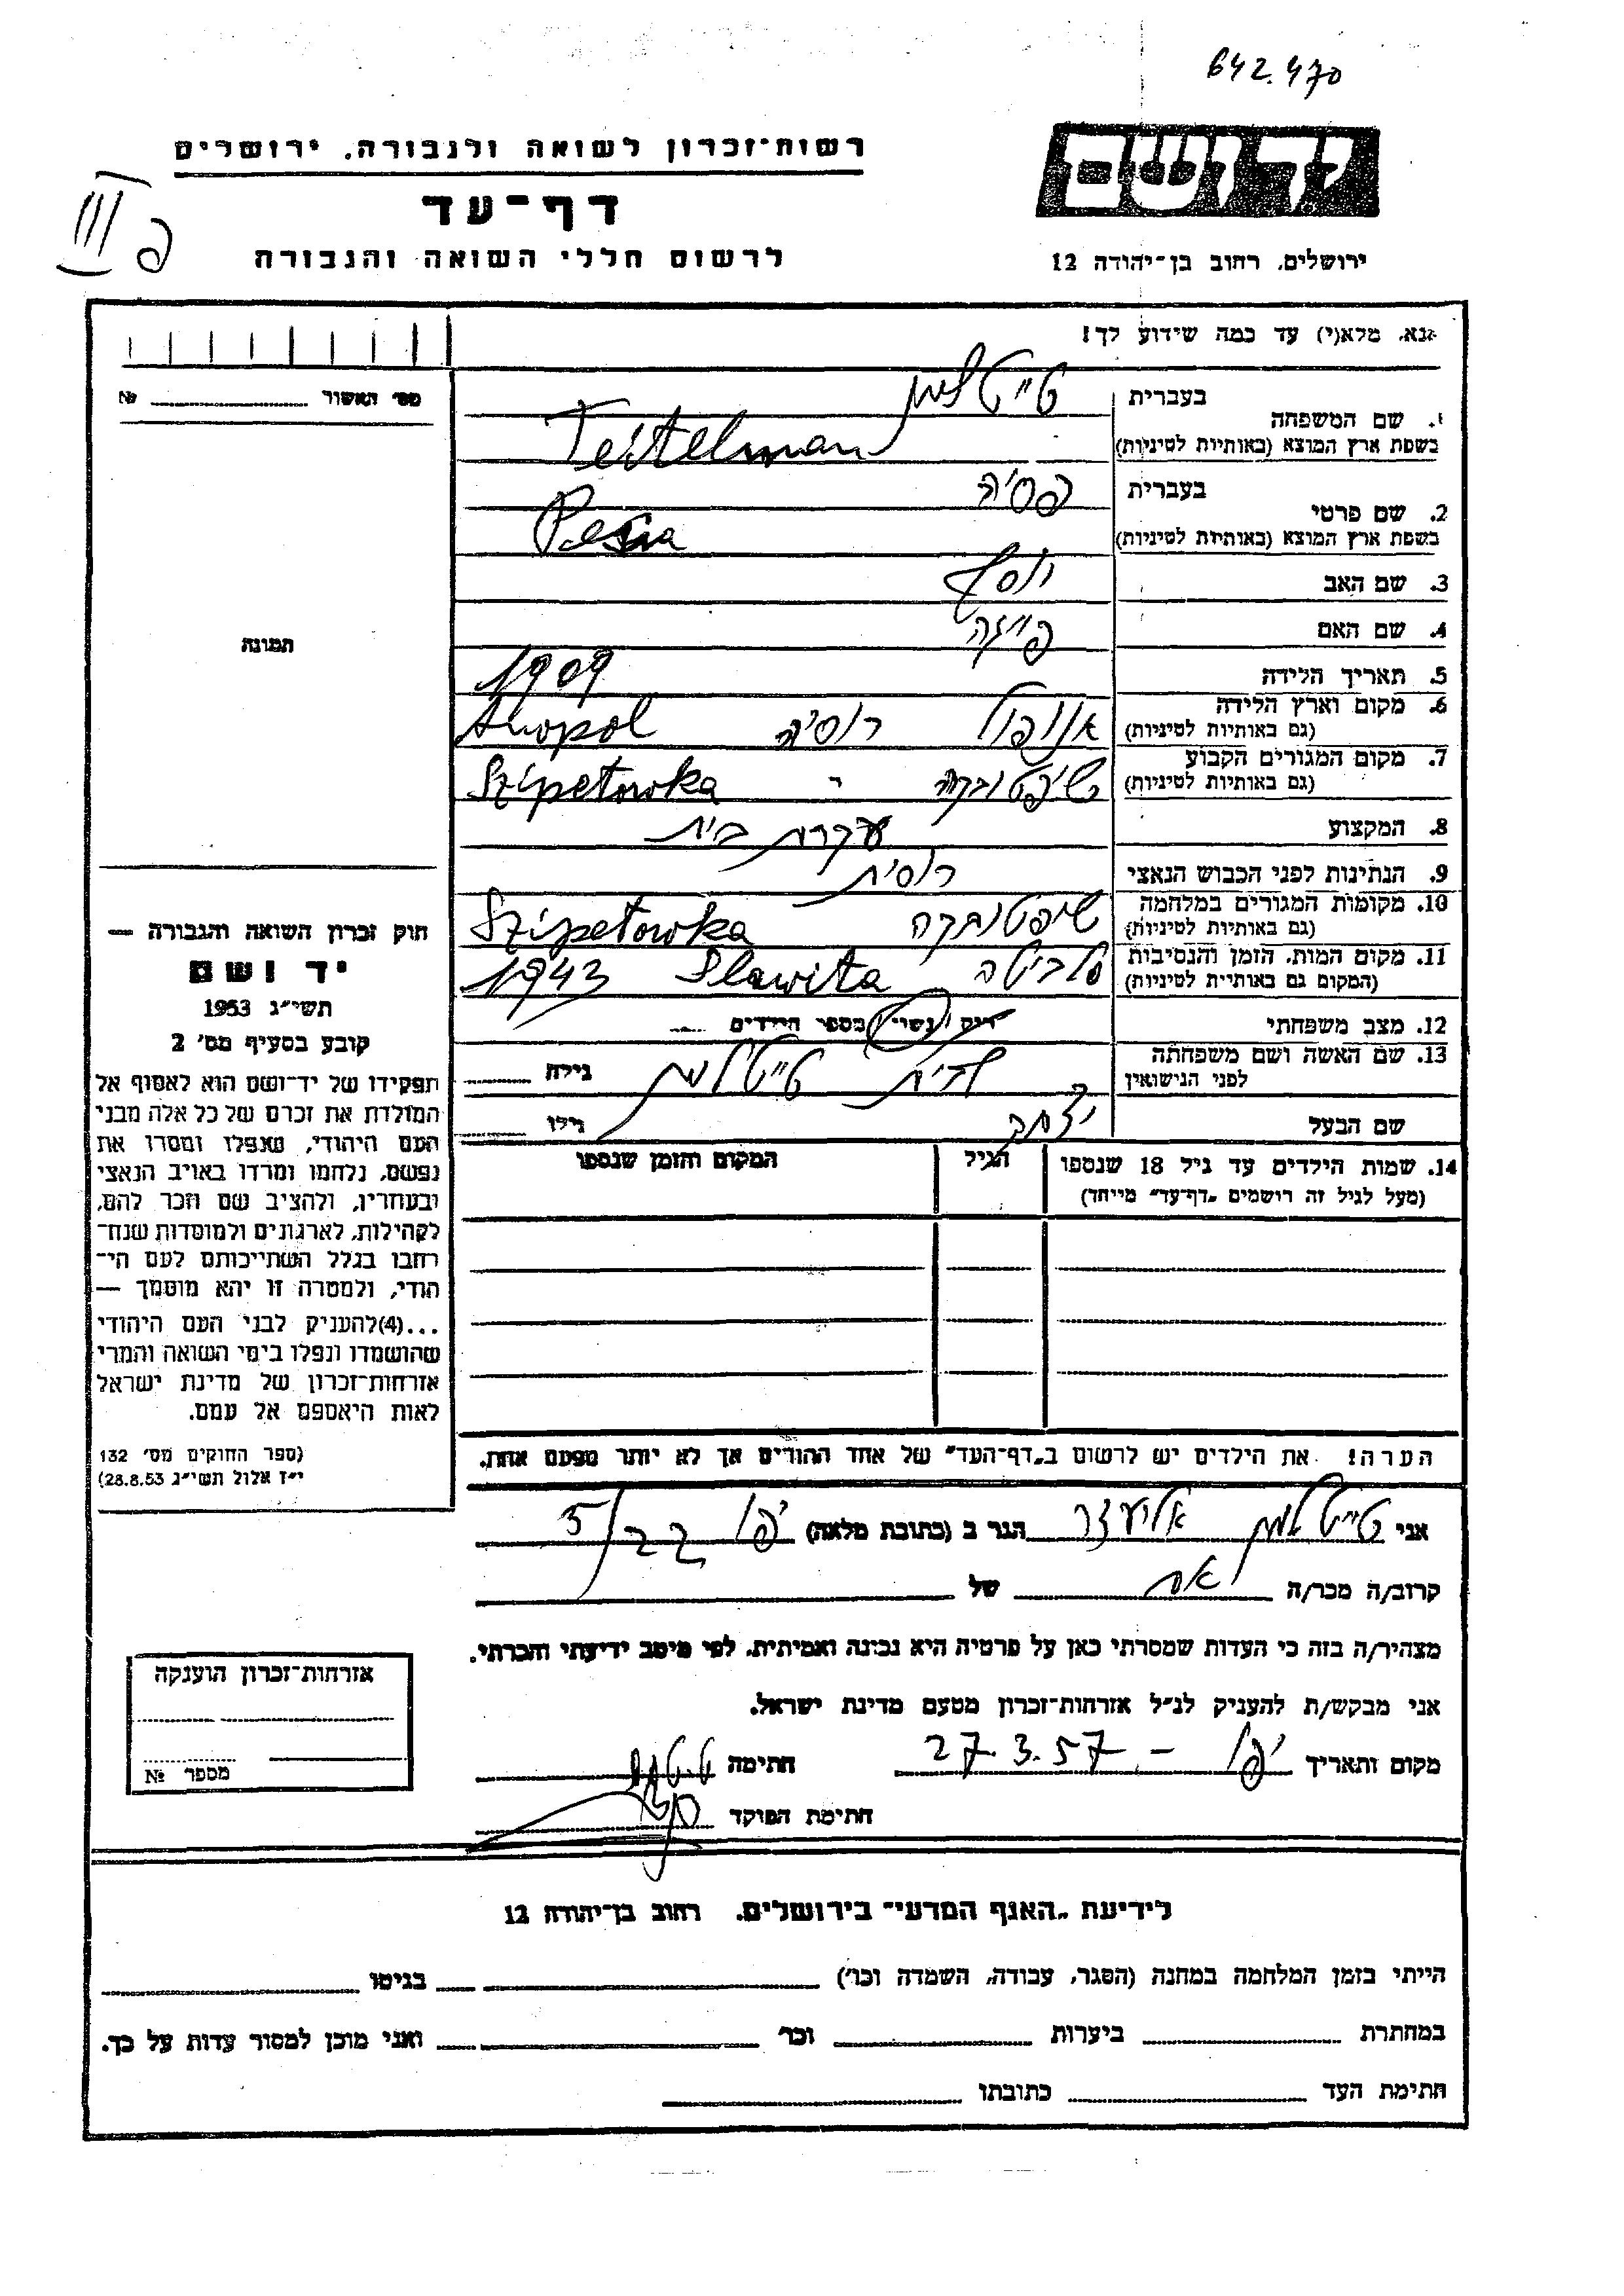 642.470
רשות־זכרון לשואה ולגבורה, ירושלים
יד ושם
דף־עד
III פ
לרשום חללי השואה והגבורה
ירושלים, רחוב בן־יהודה 12
נא, מלא(י) עד כמה שידוע לך!
מס׳ האשור № 
1. שם המשפחה
בעברית טייטלמן
בשפת ארץ המוצא (באותיות לטיניות) Teitelman
2. שם פרטי
בעברית פסיה
בשפת ארץ המוצא (באותיות לטיניות) Pesia
3. שם האב יוסף
4. שם האם פייגה
5. תאריך הלידה 1909
6. מקום וארץ הלידה אנופול רוסיה Anopol
(גם באותיות לטיניות)
7. מקום המגורים הקבוע שיפטובקה Szipetowka
(גם באותיות לטיניות)
8. המקצוע עקרת בית
9. הנתינות לפני הכבוש הנאצי רוסית
10. מקומות המגורים במלחמה שיפטובקה Szipetowka
(גם באותיות לטיניות)
11. מקום המות, הזמן והנסיבות סלביטה Slawita 1943
(המקום גם באותיות לטיניות)
12. מצב משפחתי רווק / נשוי / מספר הילדים
13. שם האשה ושם משפחתה טייטלמן גילה
לפני הנישואין
שם הבעל יצחק גילו
14. שמות הילדים עד גיל 18 שנספו הגיל המקום והזמן שנספו
(מעל לגיל זה רושמים „דף־עד״ מייחד)
הערה! את הילדים יש לרשום ב„דף־העד״ של אחד ההורים אך לא יותר מפעם אחת.
תמונה
חוק זכרון השואה והגבורה —
יד ושם
תשי״ג 1953
קובע בסעיף מס׳ 2
תפקידו של יד־ושם הוא לאסוף אל
המולדת את זכרם של כל אלה מבני
העם היהודי, שנפלו ומסרו את
נפשם, נלחמו ומרדו באויב הנאצי
ובעוזריו, ולהציב שם וזכר להם,
לקהילות, לארגונים ולמוסדות שנח־
רבו בגלל השתייכותם לעם הי־
הודי, ולמטרה זו יהא מוסמך —
...(4)להעניק לבני העם היהודי
שהושמדו ונפלו בימי השואה והמרי
אזרחות־זכרון של מדינת ישראל
לאות היאספם אל עמם.
(ספר החוקים מס׳ 132
י״ז אלול תשי״ג 28.8.53)
אני טייטלמן אליעזר הגר ב (כתובת מלאה) יפו 5/22
קרוב/ה מכר/ה אח של
מצהיר/ה בזה כי העדות שמסרתי כאן על פרטיה היא נכונה ואמיתית, לפי מיטב ידיעתי והכרתי.
אני מבקש/ת להעניק לנ״ל אזרחות־זכרון מטעם מדינת ישראל.
מקום ותאריך יפו — 27.3.57 חתימה
חתימת הפוקד
אזרחות־זכרון הוענקה
מספר №
לידיעת „האגף המדעי״ בירושלים, רחוב בן־יהודה 12
הייתי בזמן המלחמה במחנה (הסגר, עבודה, השמדה וכו׳) בגיטו
במחתרת ביערות וכו׳ ואני מוכן למסור עדות על כך.
חתימת העד כתובתו